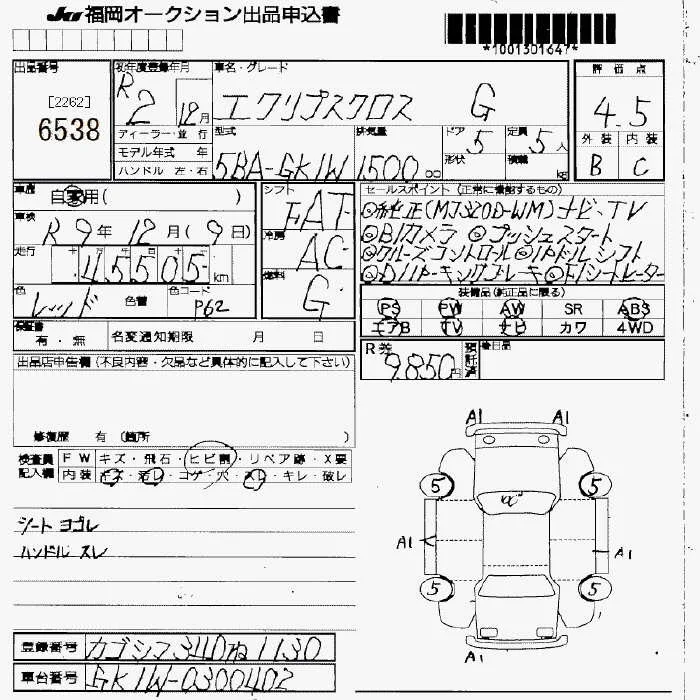 JU 福岡オークション出品申込書
*1001301647*
出品番号 初年度登録年月 車名・グレード 評価点
[2262]
6538
R2 12月 エクリプスクロス G 4.5
ディーラー・並行 型式 排気量 ドア 5 定員 5人 外装 内装
モデル年式 年 形状 積載 kg B C
ハンドル 左・右 5BA-GK1W 1500 cc
車歴 自家用( ) シフト FAT セールスポイント (正常に機能するもの)
車検 R9年12月(9日) ◎純正(MJ320D-WM)ナビ・TV
冷房 AC ◎Bカメラ ◎プッシュスタート
走行 45505km ◎クルーズコントロール◎パドルシフト
燃料 G ◎パーキングブレーキ◎シートヒーター
色 レッド 色替 色コード P62
装備品(純正品に限る)
PS PW AW SR ABS
エアB TV ナビ カワ 4WD
保証書 有・無 名変通知期限 月 日
R券 9,850円 預託済 後日品
出品店申告欄(不良内容・欠品など具体的に記入して下さい)
修復歴 有 (箇所 )
検査員記入欄 FW キズ・飛石・ヒビ割・リペア跡・X要
内装 キズ・汚レ・コゲ・穴・スレ・キレ・破レ
シート ヨゴレ
ハンドル スレ
A1 A1
5 5
A1 A1
5 5
A1
登録番号 カゴシマ340ね1130
車台番号 GK1W-0300402